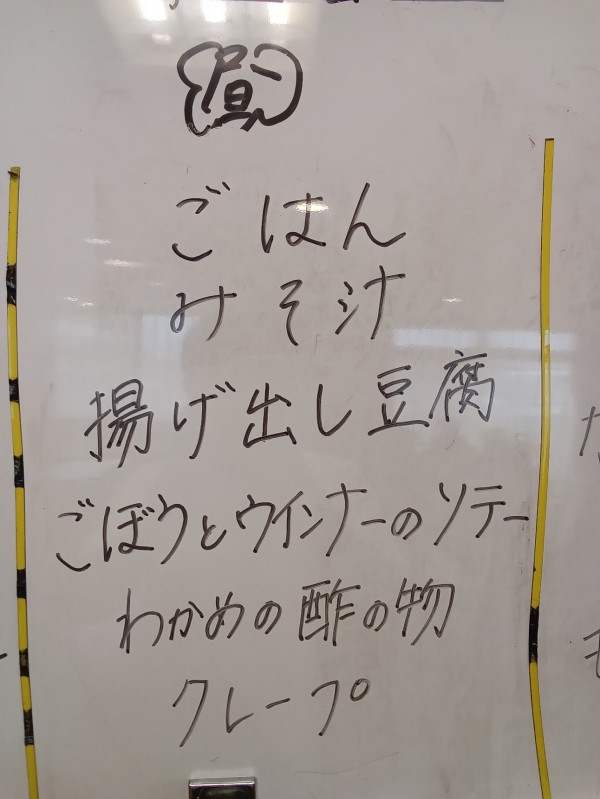 昼
ごはん
みそ汁
揚げ出し豆腐
ごぼうとウインナーのソテー
わかめの酢の物
クレープ